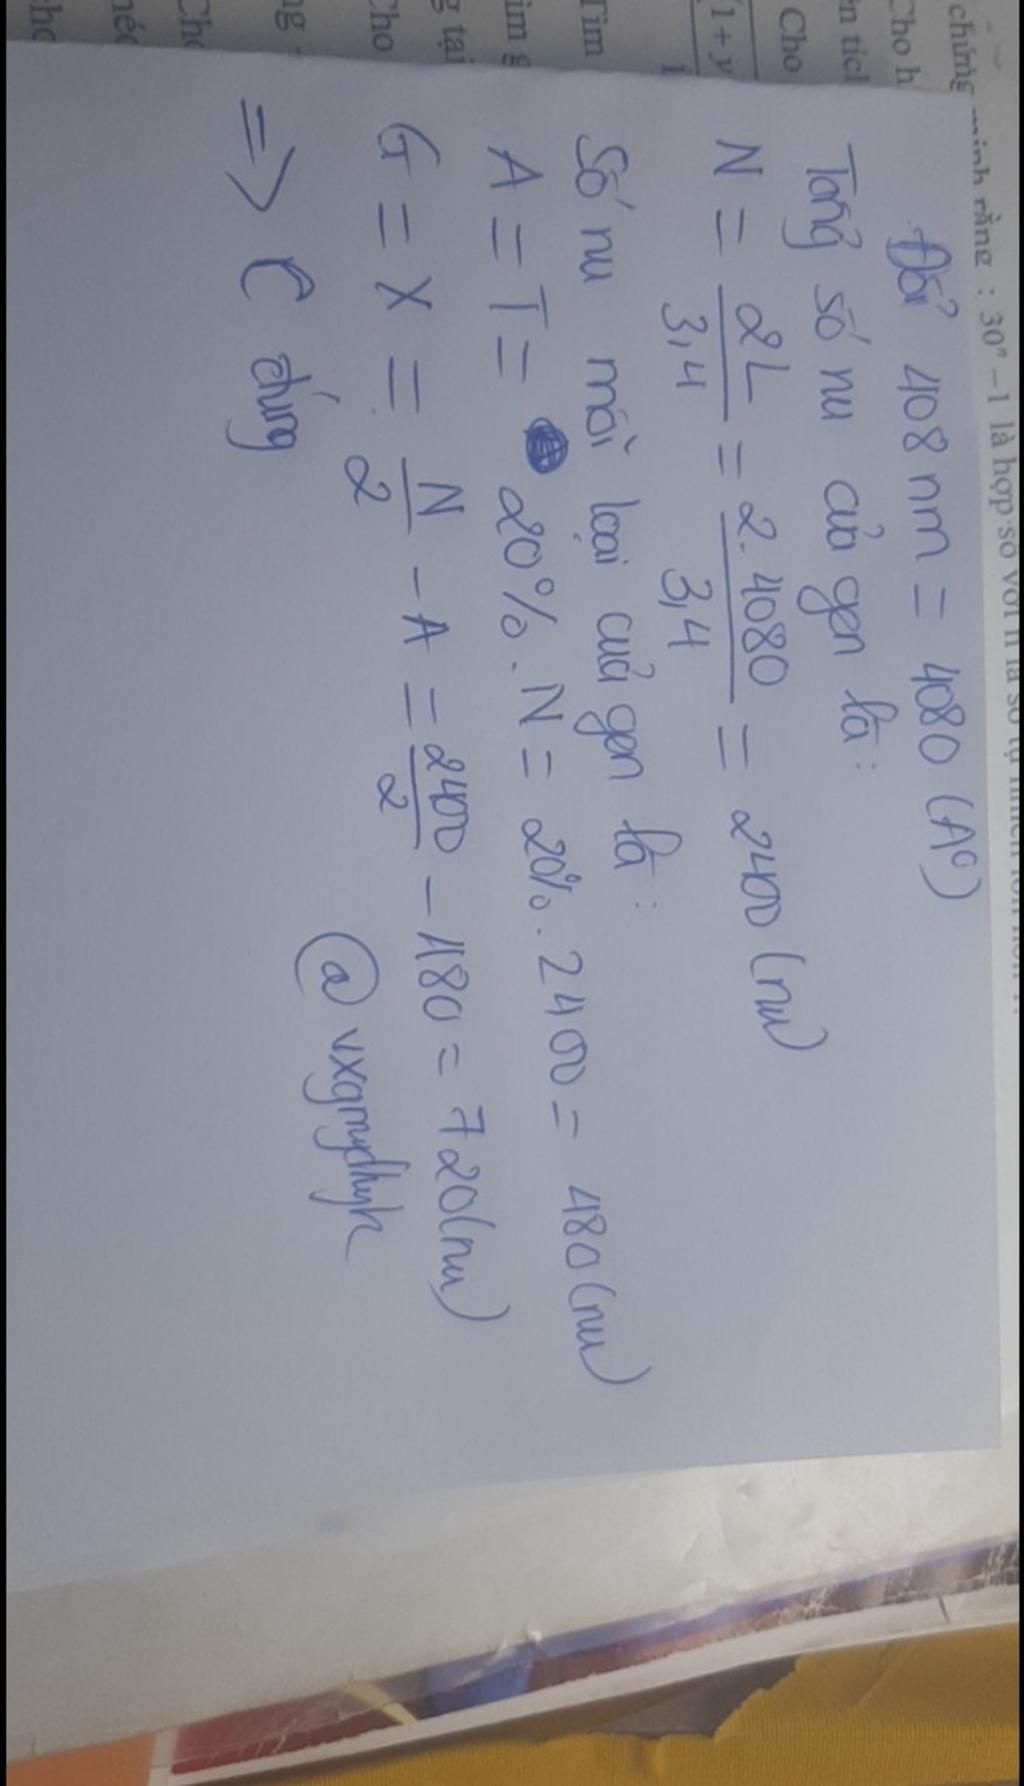 minh rằng : 30ⁿ – 1 là hợp số với n là số tự nhiên
chứng
Cho h
Cho
(1 + y
Tìm
g tại
Cho
Đổi 408 nm = 4080 (A⁰)
Tổng số nu của gen là :
N = 2L/3,4 = 2.4080/3,4 = 2400 (nu)
Số nu mỗi loại của gen là :
A = T = 20% . N = 20% . 2400 = 480 (nu)
G = X = N/2 - A = 2400/2 - 480 = 720 (nu)
=> C đúng